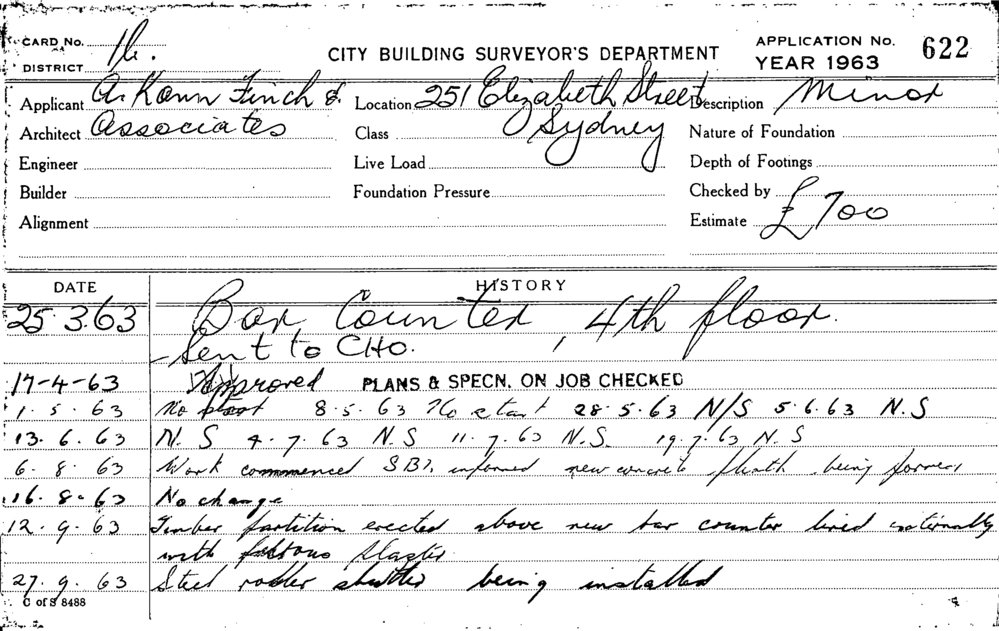 CARD No. 16.
DISTRICT
CITY BUILDING SURVEYOR'S DEPARTMENT
APPLICATION No. 622
YEAR 1963
Applicant A. Kann Finch & Location 251 Elizabeth Street Description Minor
Architect Associates Class Sydney Nature of Foundation
Engineer Live Load Depth of Footings
Builder Foundation Pressure Checked by
Alignment Estimate £700
DATE HISTORY
25.3.63 Bar Counter, 4th floor.
Sent to CHO.
17-4-63 Approved PLANS & SPECN. ON JOB CHECKED
1.5.63 No start 8.5.63 No start 28.5.63 N/S 5.6.63 N.S
13.6.63 N.S 4.7.63 N.S 11.7.63 N.S. 19.7.63 N.S
6.8.63 Work commenced informed new concrete plinth being formed
16.8.63 No change
12.9.63 Timber partition erected above new bar counter lined externally
with fibrous plaster
27.9.63 Steel roller shutter being installed
C of S 8488